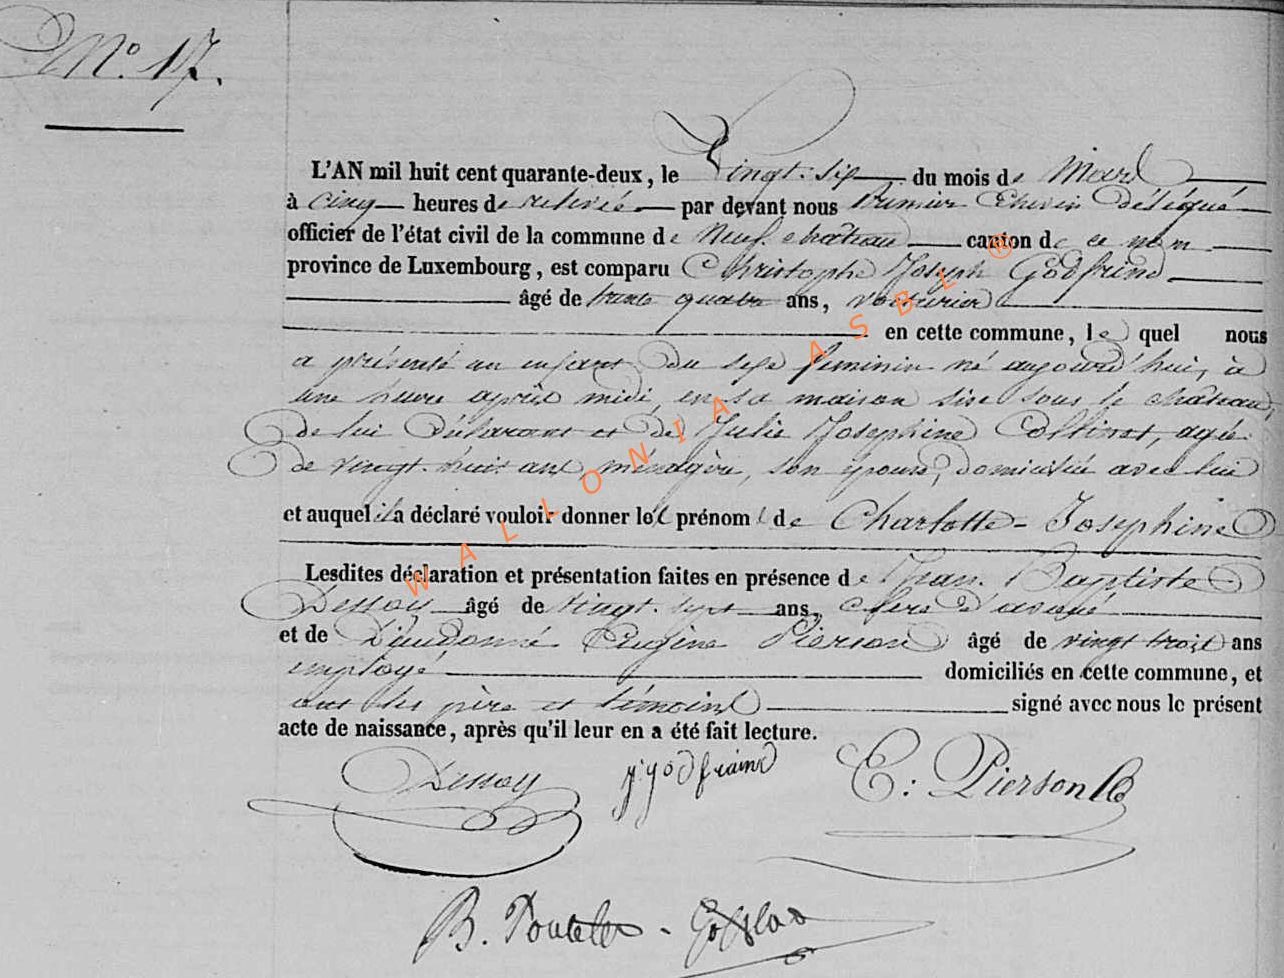 N.° 17.
L'AN mil huit cent quarante-deux, le Vingt-six du mois de Mars
à cinq heures de relevée par devant nous Premier Echevin délégué
officier de l'état civil de la commune de Neufchâteau canton de ce nom
province de Luxembourg, est comparu Christophe Joseph Godfrind
âgé de trente quatre ans, voiturier
en cette commune, le quel nous
a présenté un enfant du sexe feminin né aujourd'hui, à
une heure après midi, en sa maison sise sous le château,
de lui déclarant et de Julie Josephine Collinet, agée
de vingt-huit ans, ménagère, son épouse, domiciliée avec lui
et auquel il a déclaré vouloir donner les prénoms de Charlotte-Josephine
Lesdites déclaration et présentation faites en présence de Jean-Baptiste
Dessoy âgé de vingt-sept ans, clerc d'avoué
et de Dieudonné Eugène Pierson âgé de vingt trois ans
employé domiciliés en cette commune, et
ont les père et témoins signé avec nous le présent
acte de naissance, après qu'il leur en a été fait lecture.
Dessoy j. godfraind E: Pierson
B.
WALLONIA ASBL ®